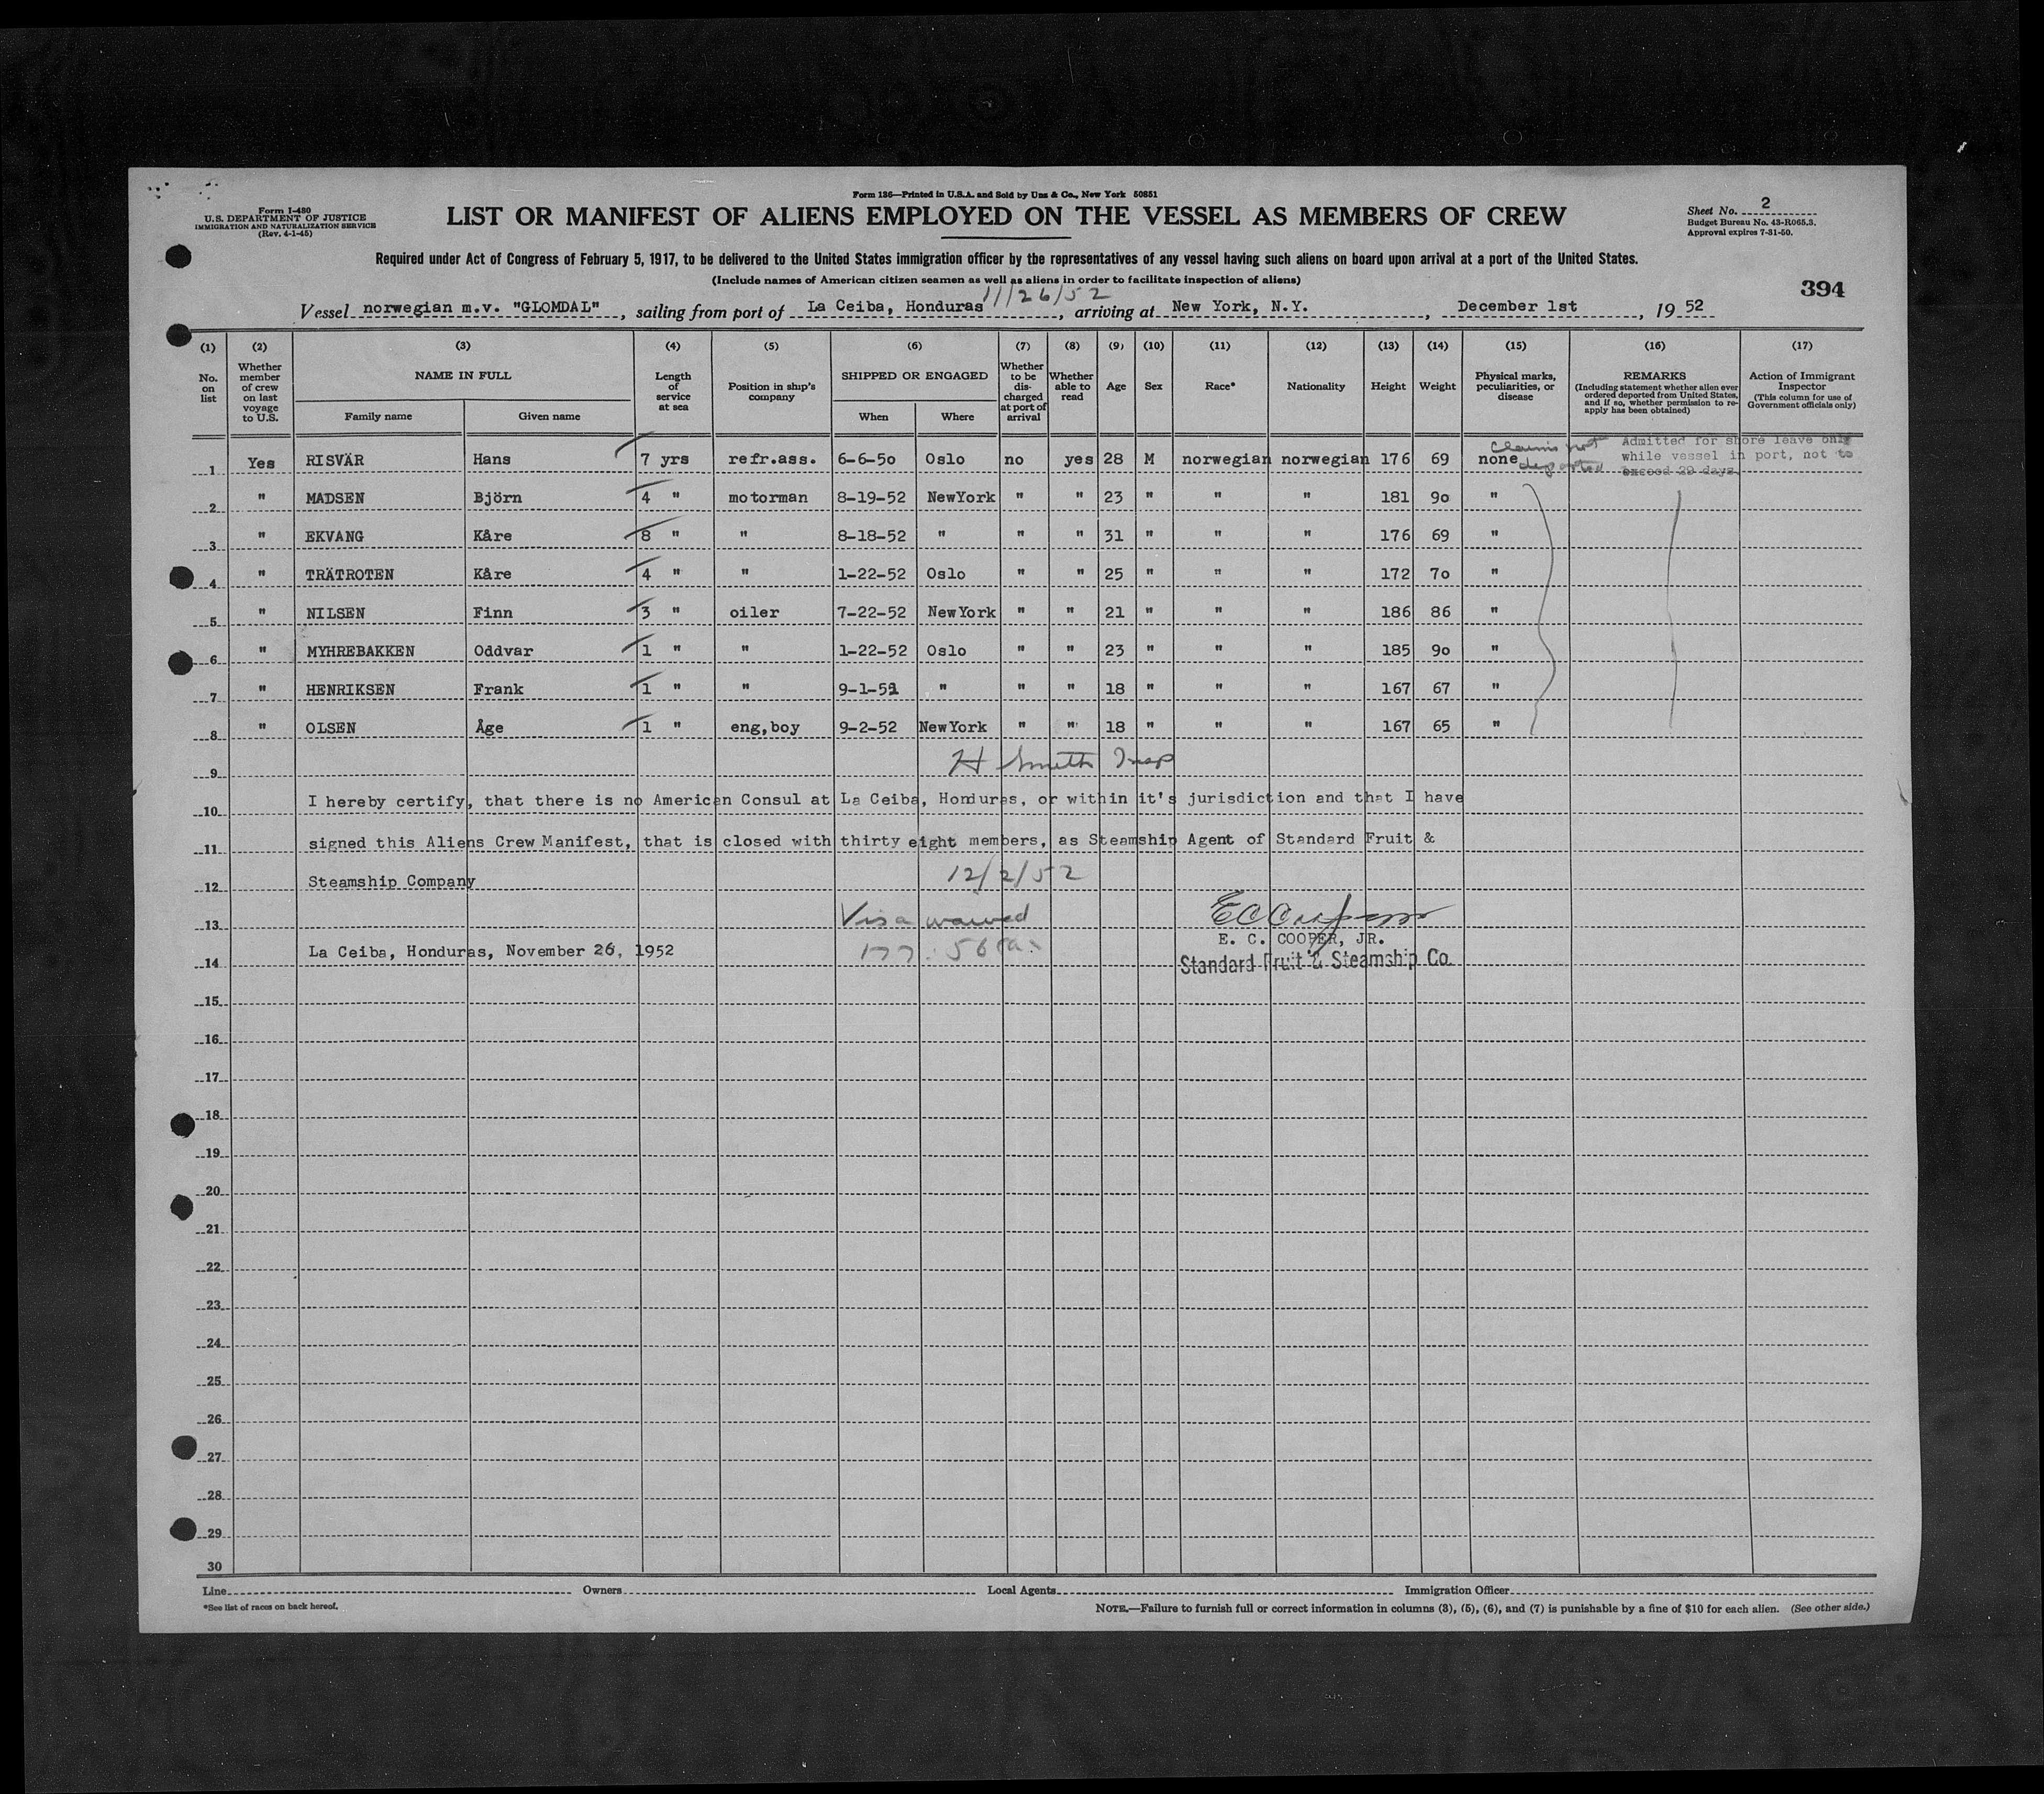 Form 136—Printed in U.S.A. and Sold by Unz & Co., New York 50851
Form I-480
U.S. DEPARTMENT OF JUSTICE
IMMIGRATION AND NATURALIZATION SERVICE
(Rev. 4-1-45)
LIST OR MANIFEST OF ALIENS EMPLOYED ON THE VESSEL AS MEMBERS OF CREW
Sheet No. 2
Budget Bureau No. 43-R065.3.
Approval expires 7-31-50.
Required under Act of Congress of February 5, 1917, to be delivered to the United States immigration officer by the representatives of any vessel having such aliens on board upon arrival at a port of the United States.
(Include names of American citizen seamen as well as aliens in order to facilitate inspection of aliens)
394
11/26/52
Vessel norwegian m.v. "GLOMDAL", sailing from port of La Ceiba, Honduras, arriving at New York, N.Y., December 1st, 19 52
(1) (2) (3) (4) (5) (6) (7) (8) (9) (10) (11) (12) (13) (14) (15) (16) (17)
No. on list
Whether member of crew on last voyage to U.S.
NAME IN FULL
Family name Given name
Length of service at sea
Position in ship's company
SHIPPED OR ENGAGED
When Where
Whether to be dis-charged at port of arrival
Whether able to read
Age
Sex
Race*
Nationality
Height
Weight
Physical marks, peculiarities, or disease
REMARKS
(Including statement whether alien ever ordered deported from United States, and if so, whether permission to re-apply has been obtained)
Action of Immigrant Inspector
(This column for use of Government officials only)
Claims not deported
Admitted for shore leave only
while vessel in port, not to
exceed 29 days.
1 Yes RISVÄR Hans 7 yrs refr.ass. 6-6-5o Oslo no yes 28 M norwegian norwegian 176 69 none
2 " MADSEN Björn 4 " motorman 8-19-52 NewYork " " 23 " " " 181 9o "
3 " EKVANG Kåre 8 " " 8-18-52 " " " 31 " " " 176 69 "
4 " TRÄTROTEN Kåre 4 " " 1-22-52 Oslo " " 25 " " " 172 7o "
5 " NILSEN Finn 3 " oiler 7-22-52 NewYork " " 21 " " " 186 86 "
6 " MYHREBAKKEN Oddvar 1 " " 1-22-52 Oslo " " 23 " " " 185 9o "
7 " HENRIKSEN Frank 1 " " 9-1-51 " " " 18 " " " 167 67 "
8 " OLSEN Åge 1 " eng,boy 9-2-52 NewYork " " 18 " " " 167 65 "
9 H Smith Insp
10 I hereby certify, that there is no American Consul at La Ceiba, Honduras, or within it's jurisdiction and that I have
11 signed this Aliens Crew Manifest, that is closed with thirty eight members, as Steamship Agent of Standard Fruit &
12 Steamship Company 12/2/52
13 Visa waived
E. C. COOPER, JR.
14 La Ceiba, Honduras, November 26, 1952
Standard Fruit & Steamship Co.
15
16
17
18
19
20
21
22
23
24
25
26
27
28
29
30
Line Owners Local Agents Immigration Officer
*See list of races on back hereof.
NOTE.—Failure to furnish full or correct information in columns (3), (5), (6), and (7) is punishable by a fine of $10 for each alien. (See other side.)